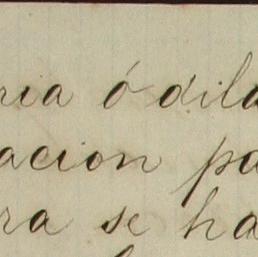 ria ó dila
acion pa
ra se ha